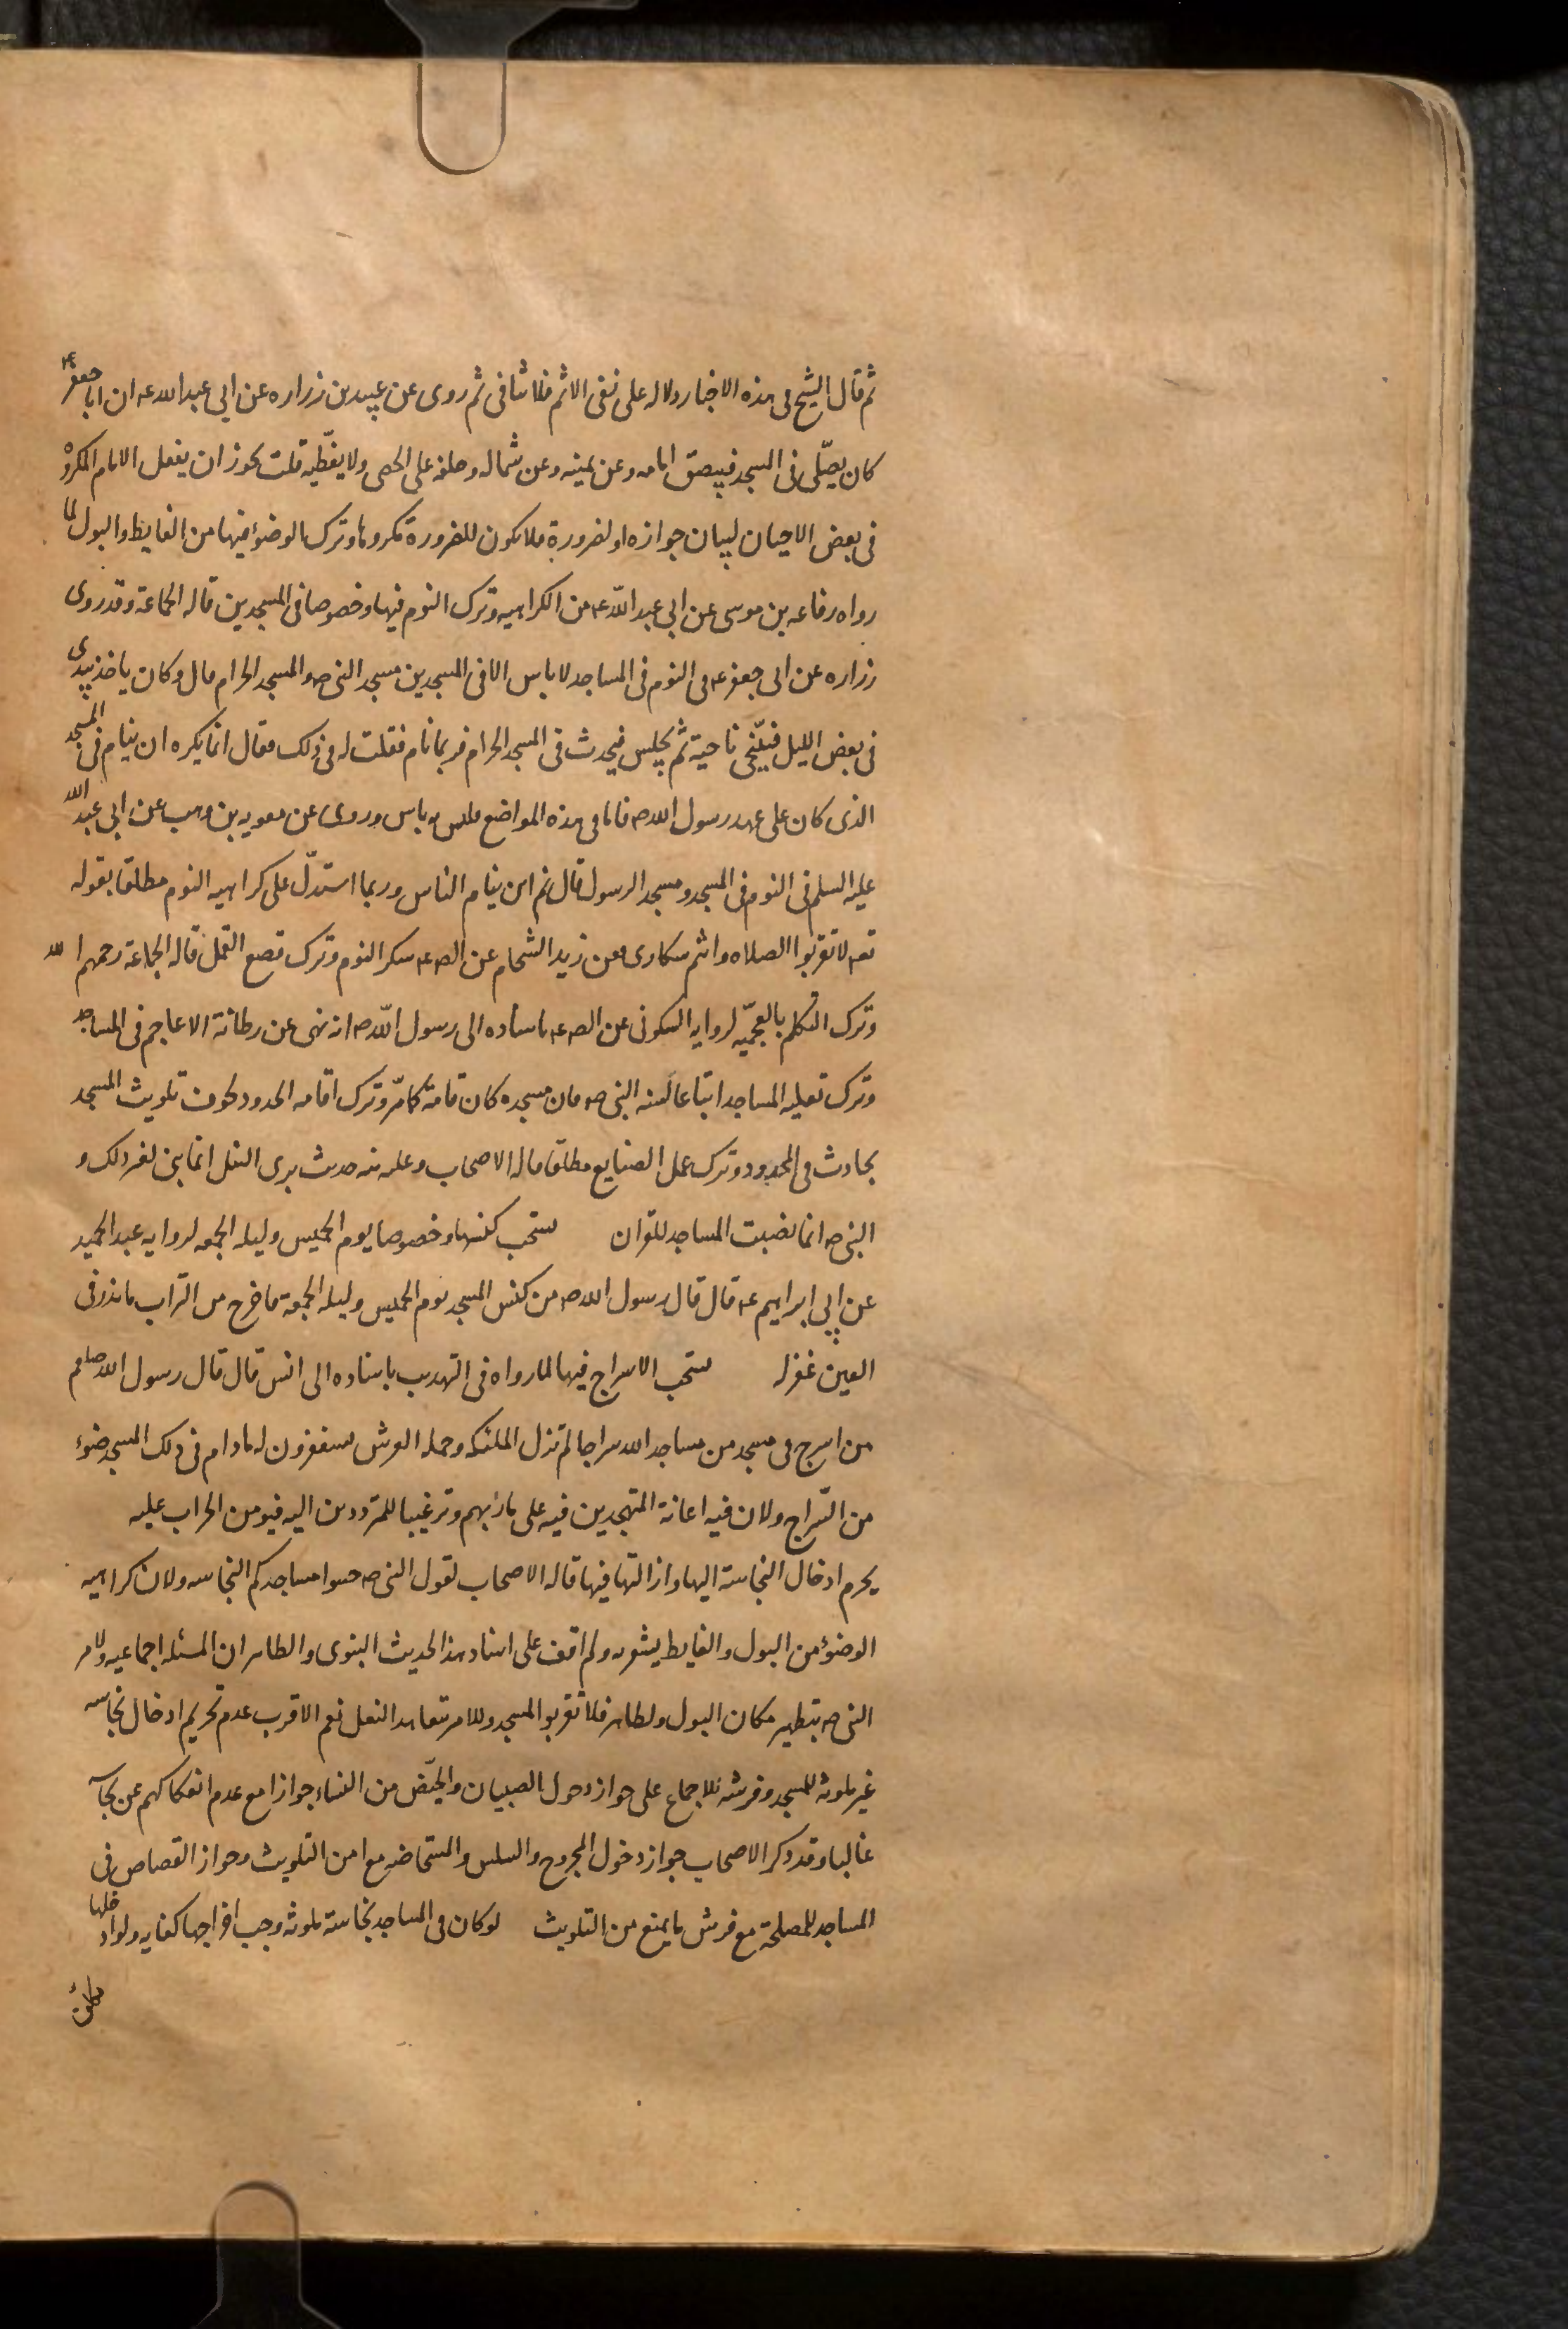 ثم قال الشيخ فى هذه الاخبار دلاله على نفى الاثم فلا تنافى ثم روى عن عبيد بن زراره عن ابى عبد الله عه ان ابا جعفر ع
كان يصلّى فى المسجد فيبصق امامه وعن يمينه وعن شماله وخلفه على الحصى ولا يغطّيه قلت يجوز ان يفعل الامام المكروه
فى بعض الاحيان لبيان جوازه او لضرورة فلا يكون للضرورة مكروها وترك الوضوء فيها من الغايط والبول لما
رواه رفاعه بن موسى عن ابى عبد اللّه عه من الكراهيه وترك النوم فيها وخصوصا فى المسجدين قاله الجماعة وقد روى
زراره عن ابى جعفر عه فى النوم فى المساجد لا باس الا فى المسجدين مسجد النبى صه والمسجد الحرام قال وكان ياخذ بيدى
فى بعض الليل فيتنحّى ناحية ثم يجلس فيحدث فى المسجد الحرام فربما نام فقلت له فى ذلك فقال انما يكره ان ينام فى المسجد
الذى كان على عهد رسول الله صه فاما فى هذه المواضع فليس به باس وروى عن معويه بن وهب عن ابى عبد الله
عليه السلم فى النوم فى المسجد ومسجد الرسول قال نعم اين ينام الناس وربما استدلّ على كراهيه النوم مطلقا بقوله
تعه لا تقربوا الصلاه وانتم سكارى فعن زيد الشحام عن الصه عه سكر النوم وترك قصع القمل قاله الجماعة رحمهم الله
وترك التكلم بالعجميّه لروايه السكونى عن الصه عه باسناده الى رسول اللّه صه انه نهى عن رطانة الاعاجم فى المساجد
وترك تعليه المساجد اتباعا لسنه النبى صه فان مسجده كان قامة كما مرّ وترك اقامه الحدود لخوف تلويث المسجد
بحادث فى المحدود وترك عمل الصنايع مطلقا قاله الاصحاب وعليه نبه حديث برى النبل انما بنى لغير ذلك و
النبى صه انما نصبت المساجد للقران يستحب كنسها وخصوصا يوم الخميس وليله الجمعه لروايه عبد الحميد
عن ابى ابراهيم عه قال قال رسول الله صه من كنس المسجد يوم الخميس وليله الجمعة فاخرج من التراب ما يذر فى
العين غفر له يستحب الاسراج فيها لما رواه فى التهذيب باسناده الى انس قال قال رسول الله صلعم
من اسرج فى مسجد من مساجد الله سراجا لم تزل الملئكه وحمله العرش يستغفرون له ما دام فى ذلك المسجد ضوء
من السّراج ولان فيه اعانة المتهجدين فيه على مآربهم وترغيبا للمترددين اليه فيومن الخراب عليه
يحرم ادخال النجاسة اليها وازالتها فيها قاله الاصحاب لقول النبى صه جنبوا مساجدكم النجاسه ولان كراهيه
الوضوء من البول والغايط يشعر به ولم اقف على اسناد هذا الحديث النبوى والظاهر ان المسئله اجماعيه ولامر
النبى صه بتطهير مكان البول ولظاهر فلا تقربوا المسجد وللامر بتعاهد النعل نعم الاقرب عدم تحريم ادخال نجاسه
غير ملوثه للمسجد وفرشه للاجماع على جواز دخول الصبيان والحيّض من النساء جوازا مع عدم انفكاكهم عن نجاسه
غالبا وقد ذكر الاصحاب جواز دخول المجروح والسلس والمستحاضه مع امن التلويث وجواز القصاص فى
المساجد للمصلحة مع فرش ما يمنع من التلويث لو كان فى المساجد نجاسة ملوثه وجب اخراجها كفايه ولو ادخلها